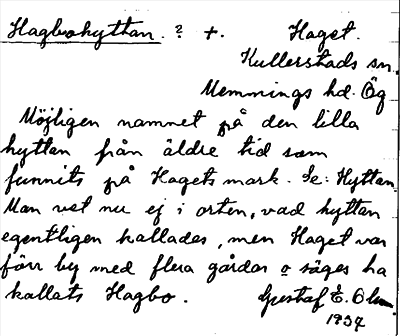 Hagbohyttan. ? +. Haget.
Kullerstads sn.
Memmings hd. Ög
Möjligen namnet på den lilla
hyttan från äldre tid som
funnits på Hagets mark. Se: Hyttan.
Man vet nu ej i orten, vad hyttan
egentligen kallades, men Haget var
förr by med flera gårdar o säges ha
kallats Hagbo. Gustaf E. Olson.
1937